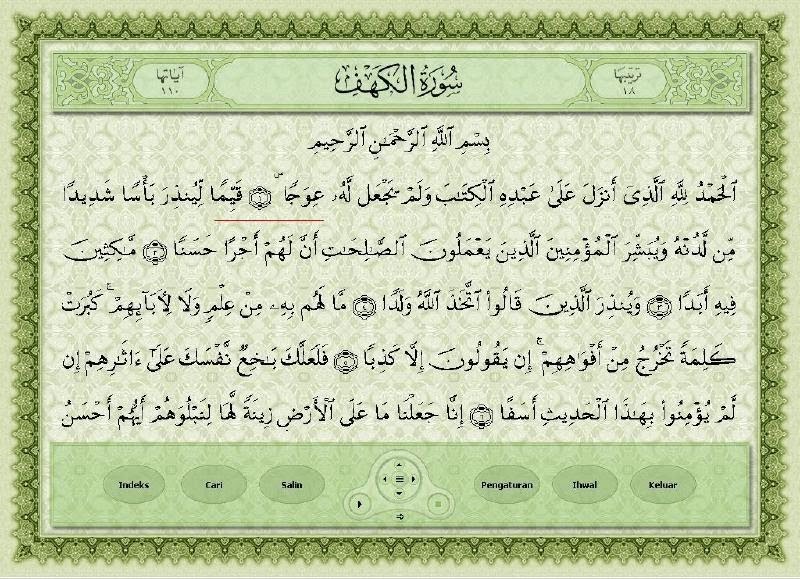 ترتيبها
١٨
سُورَةُ الكَهْفِ
آياتها
١١٠
بِسْمِ ٱللَّهِ ٱلرَّحْمَٰنِ ٱلرَّحِيمِ
ٱلْحَمْدُ لِلَّهِ ٱلَّذِىٓ أَنزَلَ عَلَىٰ عَبْدِهِ ٱلْكِتَٰبَ وَلَمْ يَجْعَل لَّهُۥ عِوَجَا ۜ ۝١ قَيِّمًا لِّيُنذِرَ بَأْسًا شَدِيدًا
مِّن لَّدُنْهُ وَيُبَشِّرَ ٱلْمُؤْمِنِينَ ٱلَّذِينَ يَعْمَلُونَ ٱلصَّٰلِحَٰتِ أَنَّ لَهُمْ أَجْرًا حَسَنًا ۝٢ مَّٰكِثِينَ
فِيهِ أَبَدًا ۝٣ وَيُنذِرَ ٱلَّذِينَ قَالُوا۟ ٱتَّخَذَ ٱللَّهُ وَلَدًا ۝٤ مَّا لَهُم بِهِۦ مِنْ عِلْمٍ وَلَا لِءَابَآئِهِمْ ۚ كَبُرَتْ
كَلِمَةً تَخْرُجُ مِنْ أَفْوَٰهِهِمْ ۚ إِن يَقُولُونَ إِلَّا كَذِبًا ۝٥ فَلَعَلَّكَ بَٰخِعٌ نَّفْسَكَ عَلَىٰٓ ءَاثَٰرِهِمْ إِن
لَّمْ يُؤْمِنُوا۟ بِهَٰذَا ٱلْحَدِيثِ أَسَفًا ۝٦ إِنَّا جَعَلْنَا مَا عَلَى ٱلْأَرْضِ زِينَةً لَّهَا لِنَبْلُوَهُمْ أَيُّهُمْ أَحْسَنُ
Indeks
Cari
Salin
Pengaturan
Ihwal
Keluar